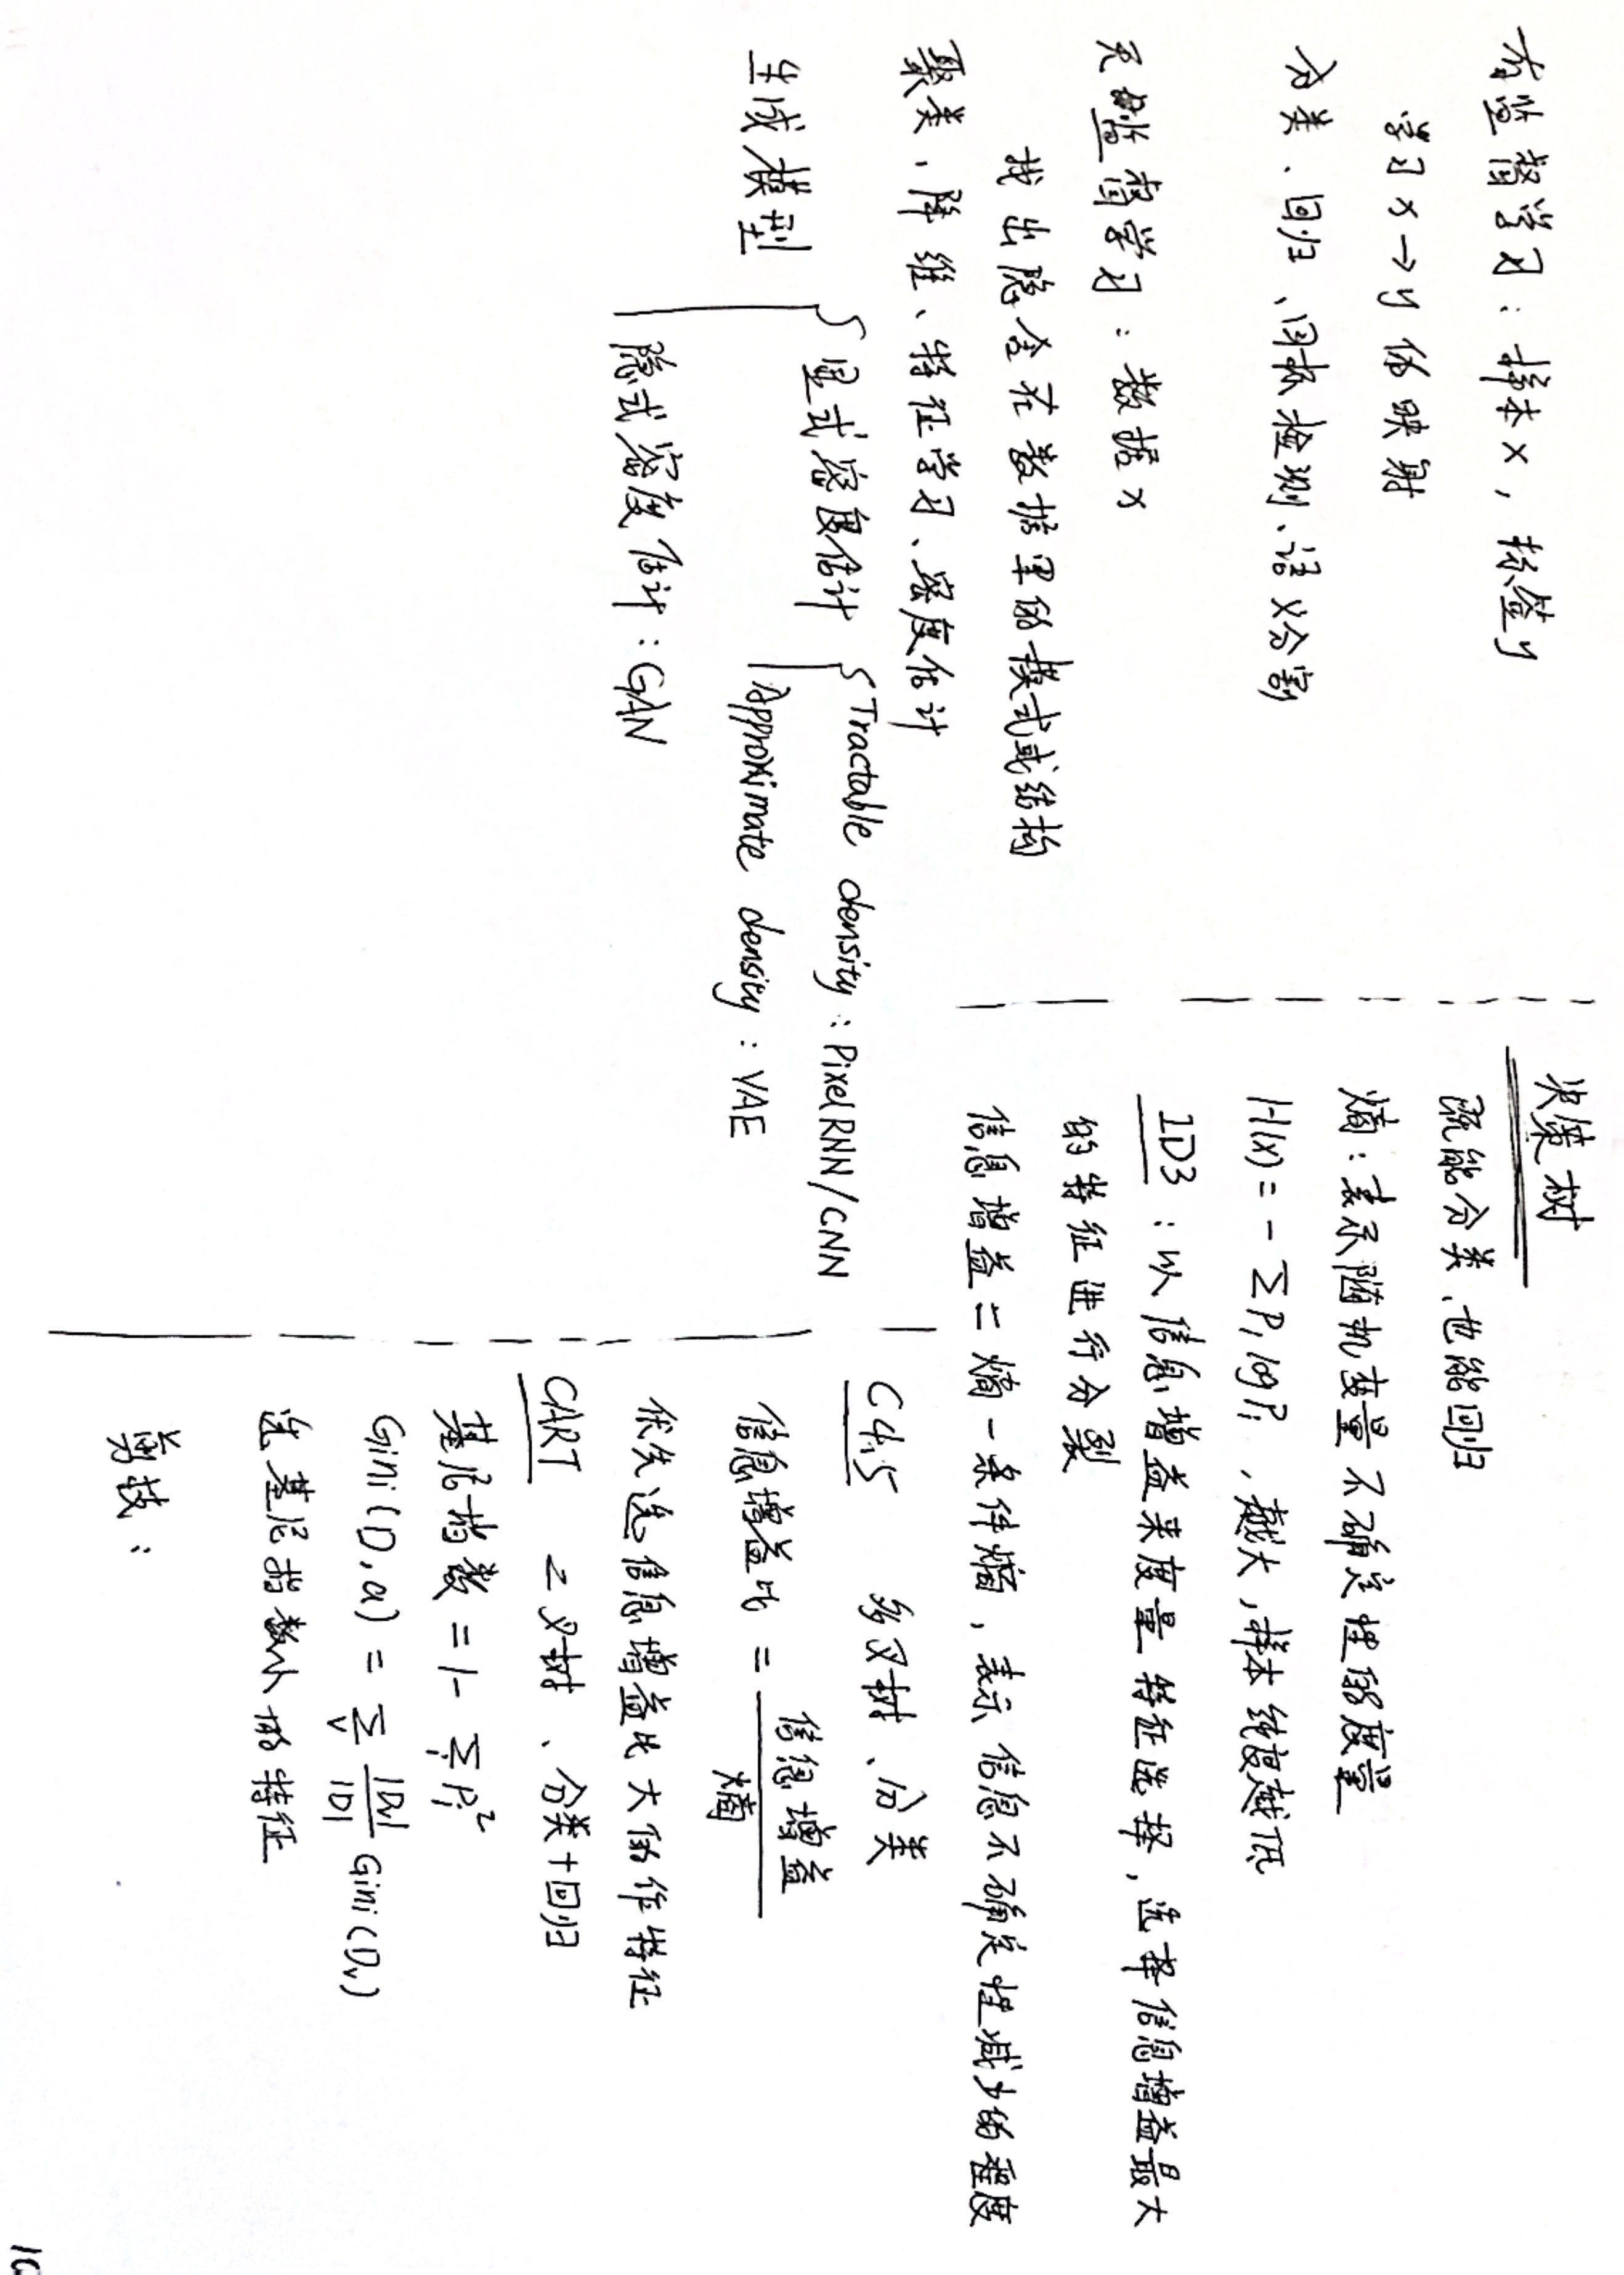 有监督学习：样本x，标签y
学习x→y的映射
分类、回归、目标检测、语义分割
无监督学习：数据x
找出隐含在数据里的模式或结构
聚类、降维、特征学习、密度估计
生成模型
显式密度估计
Tractable density：PixelRNN/CNN
Approximate density：VAE
隐式密度估计：GAN
决策树
既能分类、也能回归
熵：表示随机变量不确定性的度量
H(x) = - Σ Pi log Pi ，越大，样本纯度越低
ID3：以信息增益来度量特征选择，选择信息增益最大
的特征进行分裂
信息增益 = 熵 - 条件熵，表示信息不确定性减少的程度
C4.5 多叉树、分类
信息增益比 = 信息增益 / 熵
优先选信息增益比大的作特征
CART 二叉树、分类+回归
基尼指数 = 1 - Σi Pi²
Gini(D, a) = Σv |Dv|/|D| Gini(Dv)
选基尼指数小的特征
剪枝：